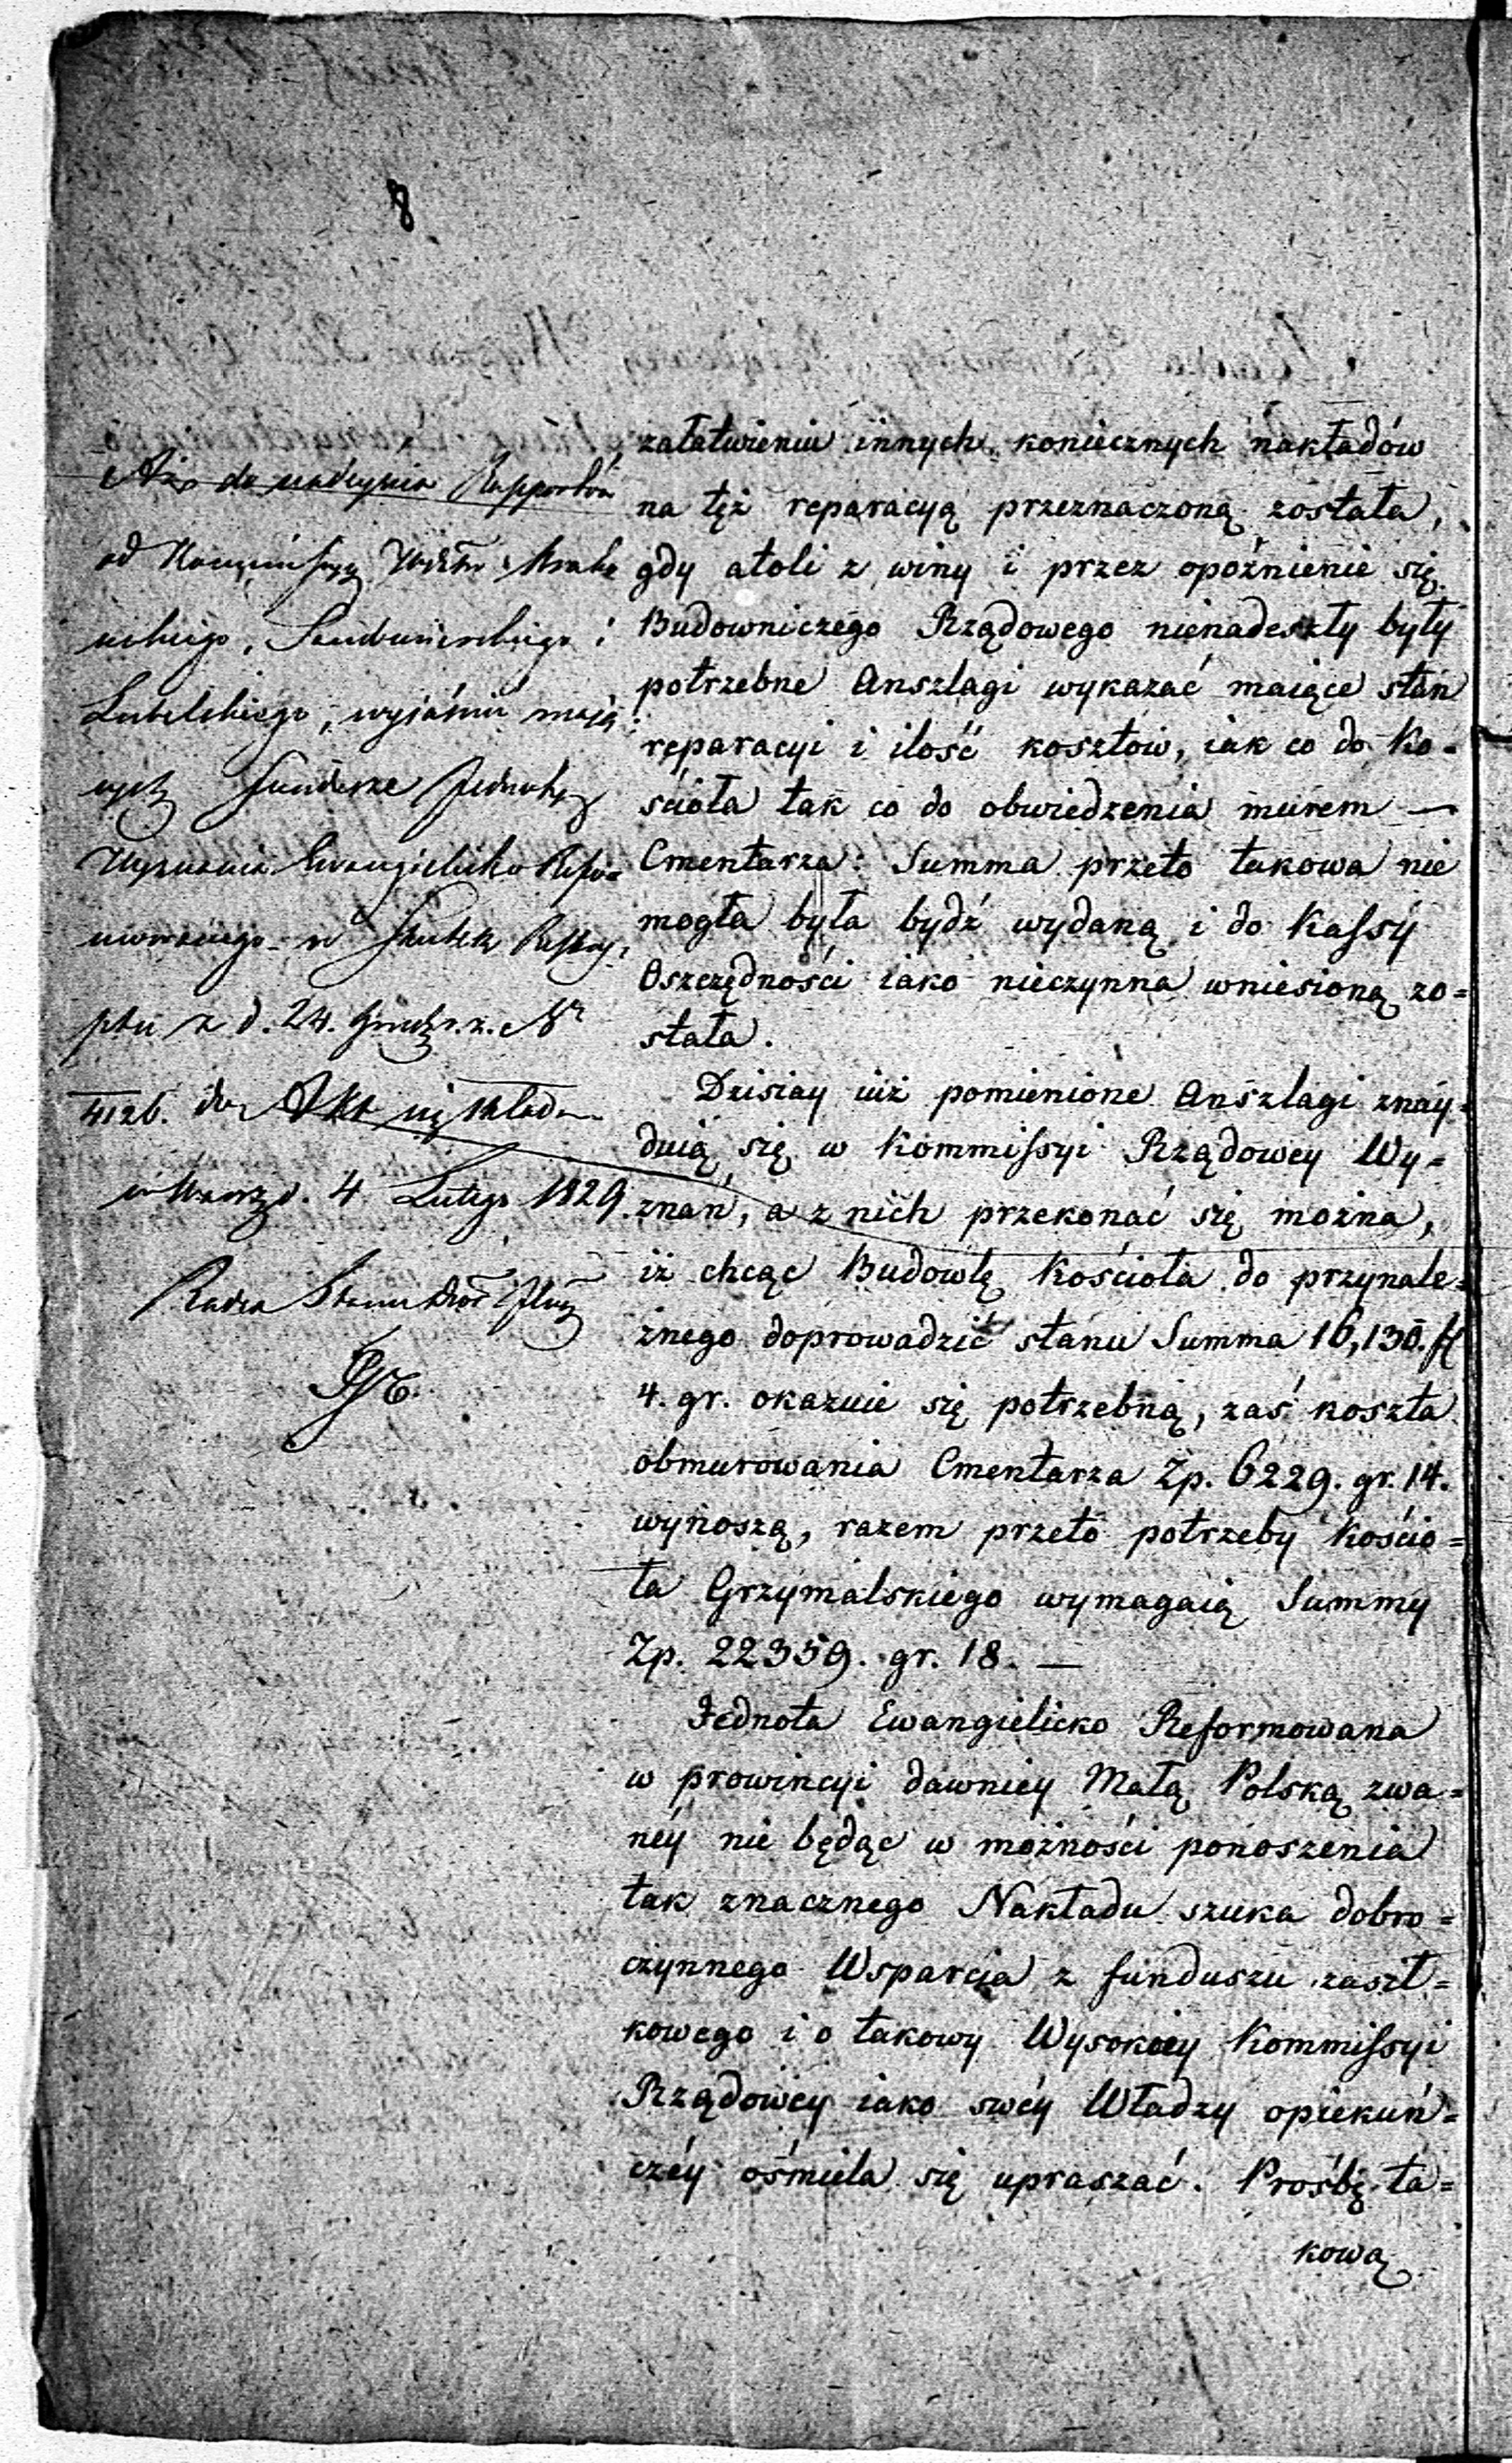 8
Aż do nadeyścia Rapportów
od Kommissyy Wdztw: Krako
wskiego, Sandomierskiego i
Lubelskiego, wyjaśnić mają
cych fundusze Jednoty
Wyznania Ewangielicko Refor=
mowanego w skutek Reskry,
ptu z d. 24. Grud. r. z. Nr
4126. do Akt się składa
w Warsz. d. 4 Lutego 1829.
Radca Stanu
załatwieniu innych koniecznych nakładów
na tęż reparacyą przeznaczoną została,
gdy atoli z winy i przez opóźnienie się
Budowniczego Rządowego nienadeszły były
potrzebne Anszlagi wykazać maiące stan
reparacyi i ilość kosztów, iak co do Ko=
ścioła tak co do obwiedzenia murem —
Cmentarza: Summa przeto takowa nie
mogła była bydź wydaną i do Kassy
Oszczędności iako nieczynna wniesioną zo=
stała.
Dzisiay iuż pomienione Anszlagi znay=
duią się w Kommissyi Rządowey Wy=
znań, a z nich przekonać się można,
iż chcąc Budowlę Kościoła do przynale=
żnego doprowadzić stanu Summa 16,130. fl
4. gr. okazuie się potrzebną, zaś koszta
obmurowania Cmentarza Zp. 6229. gr. 14.
wynoszą, razem przeto potrzeby Kościo=
ła Grzymalskiego wymagaią Summy
Zp. 22359. gr. 18. —
Jednota Ewangielicko Reformowana
w prowincyi dawniey Małą Polską zwa=
néy nie będąc w możności ponoszenia
tak znacznego Nakładu szuka dobro=
czynnego Wsparcia z funduszu zasił=
kowego i o takowy Wysokiey Kommissyi
Rządowey iako swéy Władzy opiekuń=
czéy ośmiela się upraszać. Prośbę ta=
kową